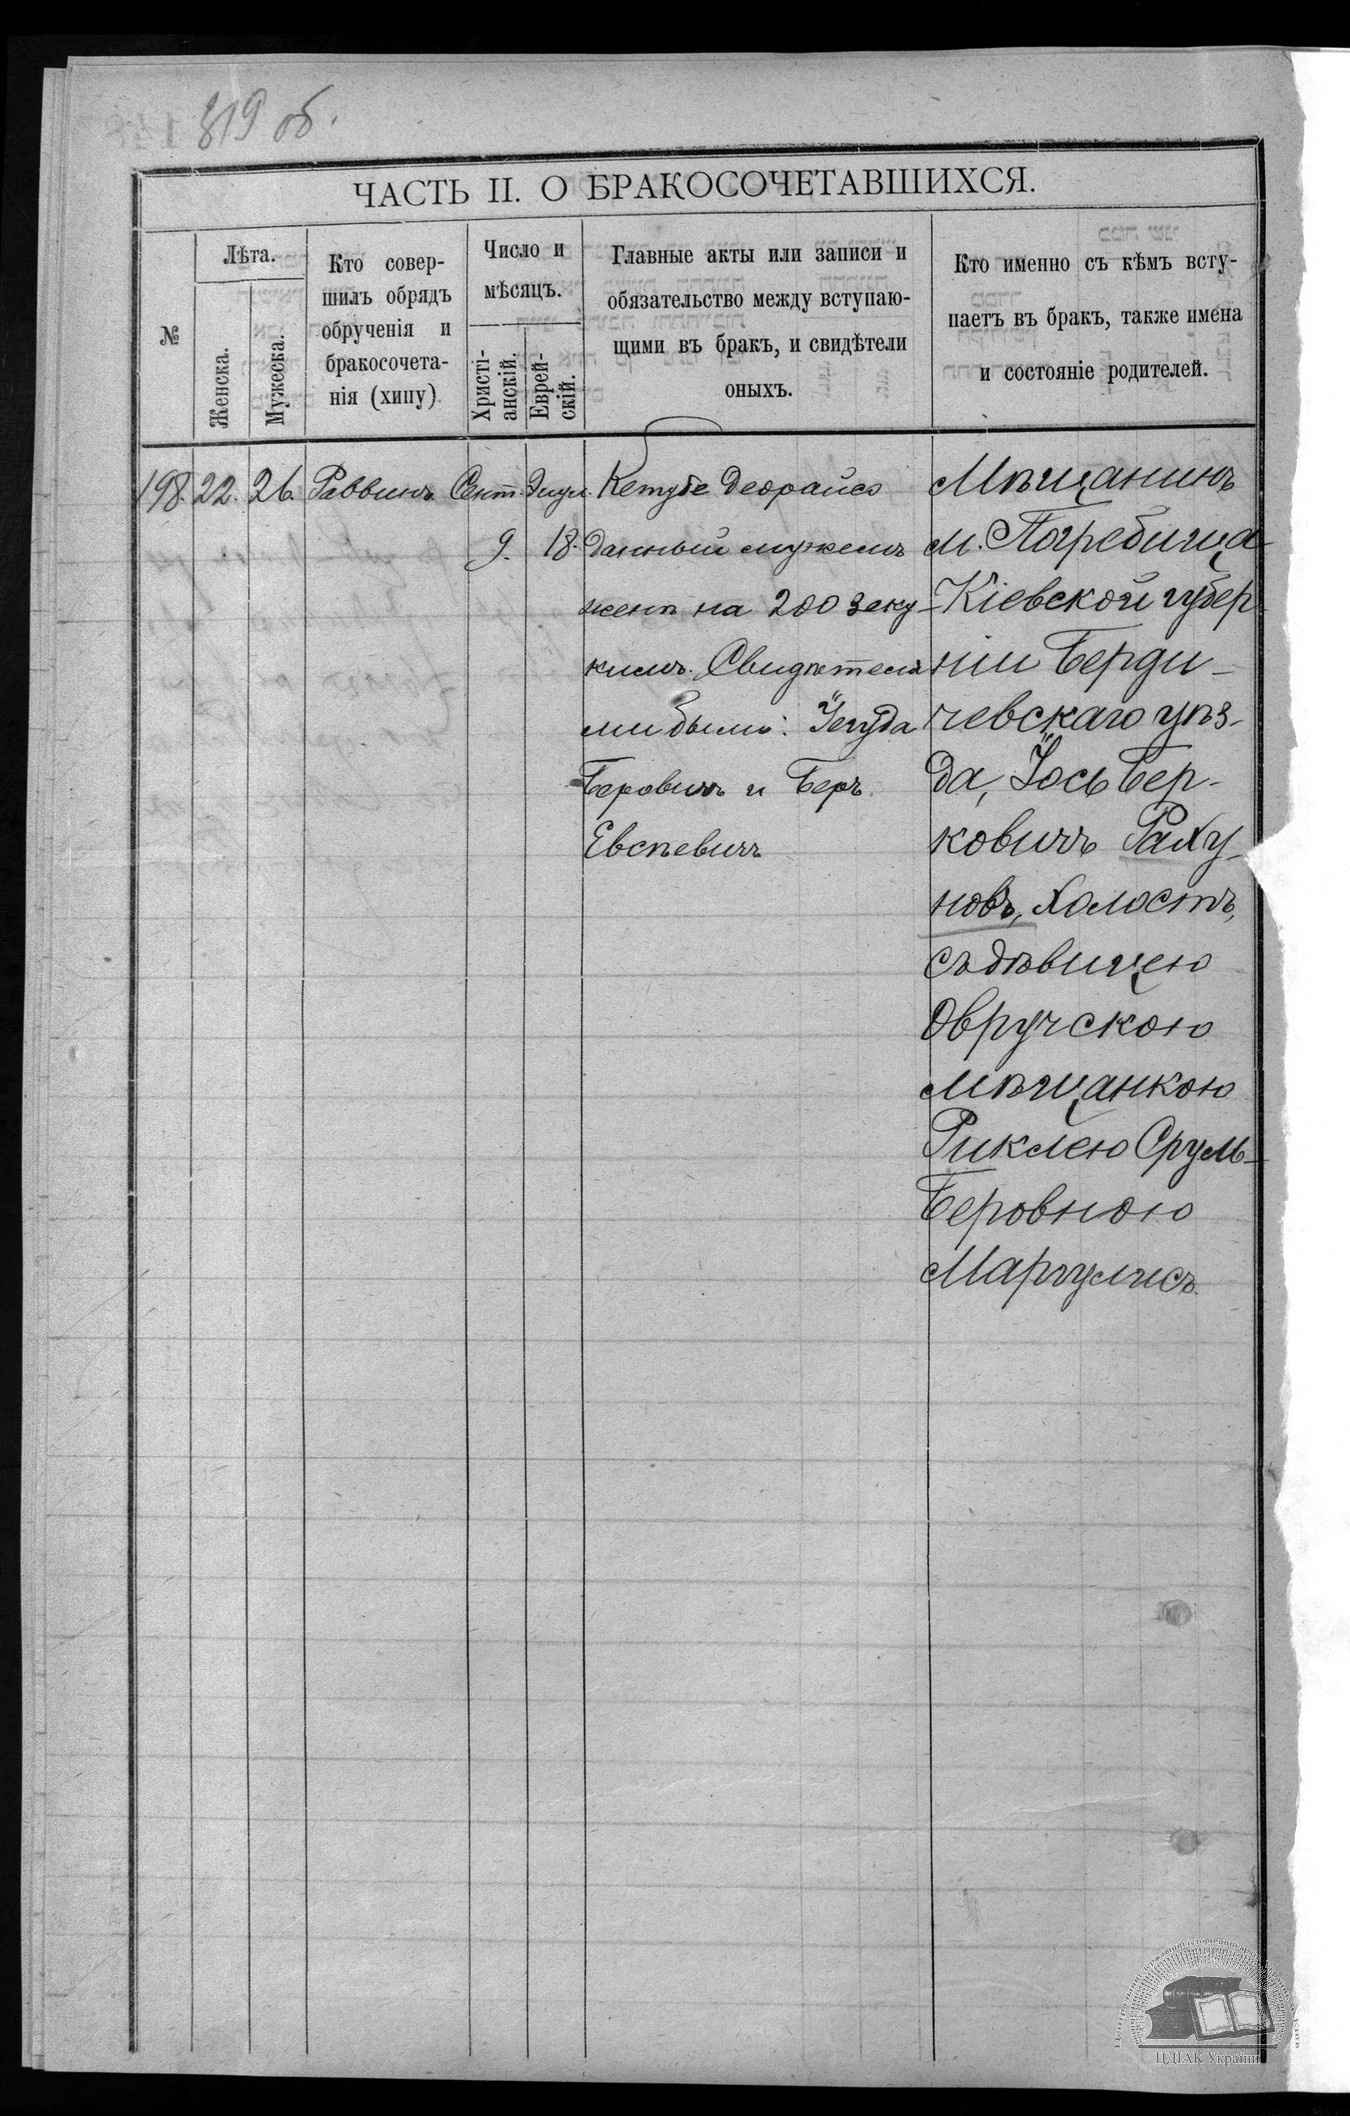 319 об.
ЧАСТЬ II. О БРАКОСОЧЕТАВШИХСЯ.
№
Лѣта.
Женска.
Мужеска.
Кто совер-
шилъ обрядъ
обрученія и
бракосочета-
нія (хипу)
Число и
мѣсяцъ.
Христі-
анскій.
Еврей-
скій.
Главные акты или записи и
обязательство между вступаю-
щими въ бракъ, и свидѣтели
оныхъ.
Кто именно съ кѣмъ всту-
паетъ въ бракъ, также имена
и состояніе родителей.
198. 22. 26. Раввинъ Сент. Элул.
9. 18.
Кетубе деорайсэ
данный мужемъ
женѣ на 200 зеку-
кимъ. Свидѣтеля
ми были: Iегуда
Беровичъ и Беръ
Евсѣевичъ
Мѣщанинъ
м. Погребища
Кіевской губер
ніи Берди-
чевскаго уѣз-
да, Iось Бер-
ковичъ Раху-
новъ, холостъ,
съ дѣвицею
Овручскою
мѣщанкою
Риклею Сруль-
Беровною
Маргулисъ.
ЦДІАК України